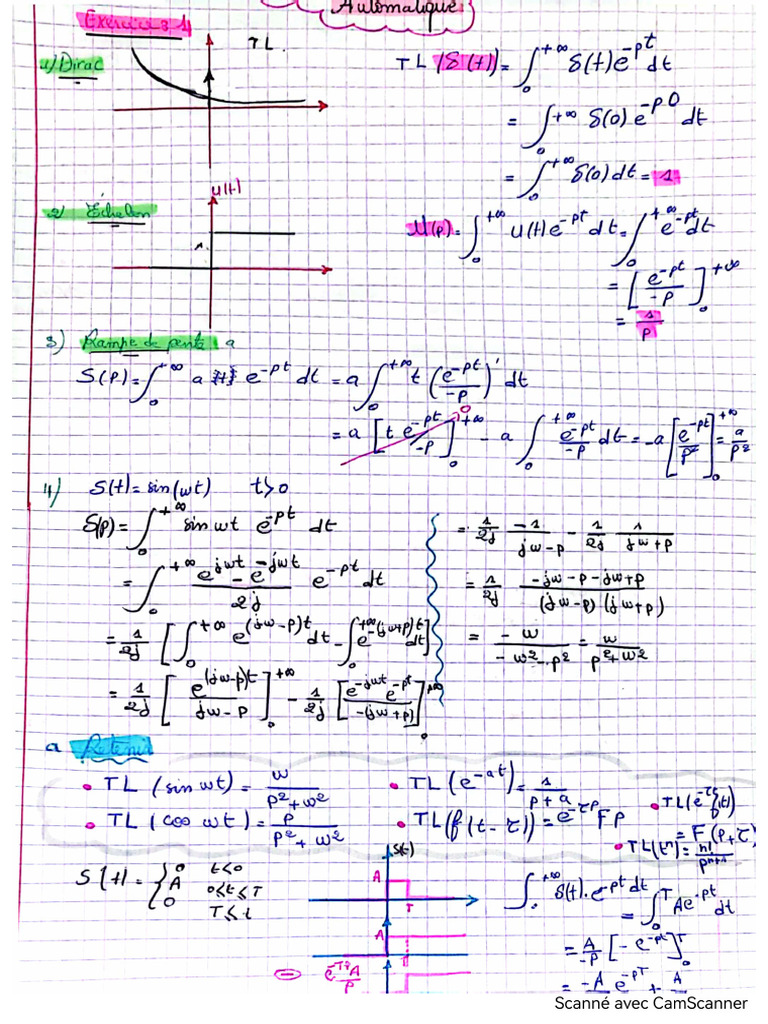 Automatique
Exercice 1
1) Dirac
TL.
TL (δ(t)) = ∫₀^{+∞} δ(t) e^{-pt} dt
= ∫₀^{+∞} δ(0) e^{-p0} dt
= ∫₀^{+∞} δ(0) dt = 1
2) Échelon
u(t)
1
U(p) = ∫₀^{+∞} u(t) e^{-pt} dt = ∫₀^{+∞} e^{-pt} dt
= [e^{-pt}/-p]₀^{+∞}
= 1/p
3) Rampe de pente : a
S(p) = ∫₀^{+∞} a t e^{-pt} dt = a ∫₀^{+∞} t (e^{-pt}/-p)' dt
= a [t e^{-pt}/-p]₀^{+∞} 0 - a ∫₀^{+∞} e^{-pt}/-p dt = -a [e^{-pt}/p²]₀^{+∞} = a/p²
4) S(t) = sin(wt) t>0
S(p) = ∫₀^{+∞} sin wt e^{-pt} dt
= ∫₀^{+∞} e^{jwt} - e^{-jwt}/2j e^{-pt} dt
= 1/2j [∫₀^{+∞} e^{(jw-p)t} dt - ∫₀^{+∞} e^{-(jw+p)t} dt]
= 1/2j [e^{(jw-p)t}/jw-p]₀^{+∞} - 1/2j [e^{-jwt} e^{-pt}/-(jw+p)]₀^{+∞}
= 1/2j -1/jw-p - 1/2j 1/jw+p
= 1/2j -jw-p-jw+p/(jw-p)(jw+p)
= -w/-w²-p² = w/p²+w²
a Retenir
• TL (sin wt) = w/p²+w²
• TL (e^{-at}) = 1/p+a
• TL (e^{-τt} f(t)) = F(p+τ)
• TL (cos wt) = p/p²+w²
• TL (f(t-τ)) = e^{-τp} Fp
• TL(tⁿ) = n!/p^{n+1}
S(t) = { 0 t<0
A 0≤t≤T
0 T≤t
S(t)
A
T
A
T
⊖ e^{-Tp}A/p
∫₀^{+∞} s(t).e^{-pt} dt
= ∫₀^T Ae^{-pt} dt
= A/-p [-e^{-pt}]₀^T
= -A e^{-pT} + A
Scanné avec CamScanner